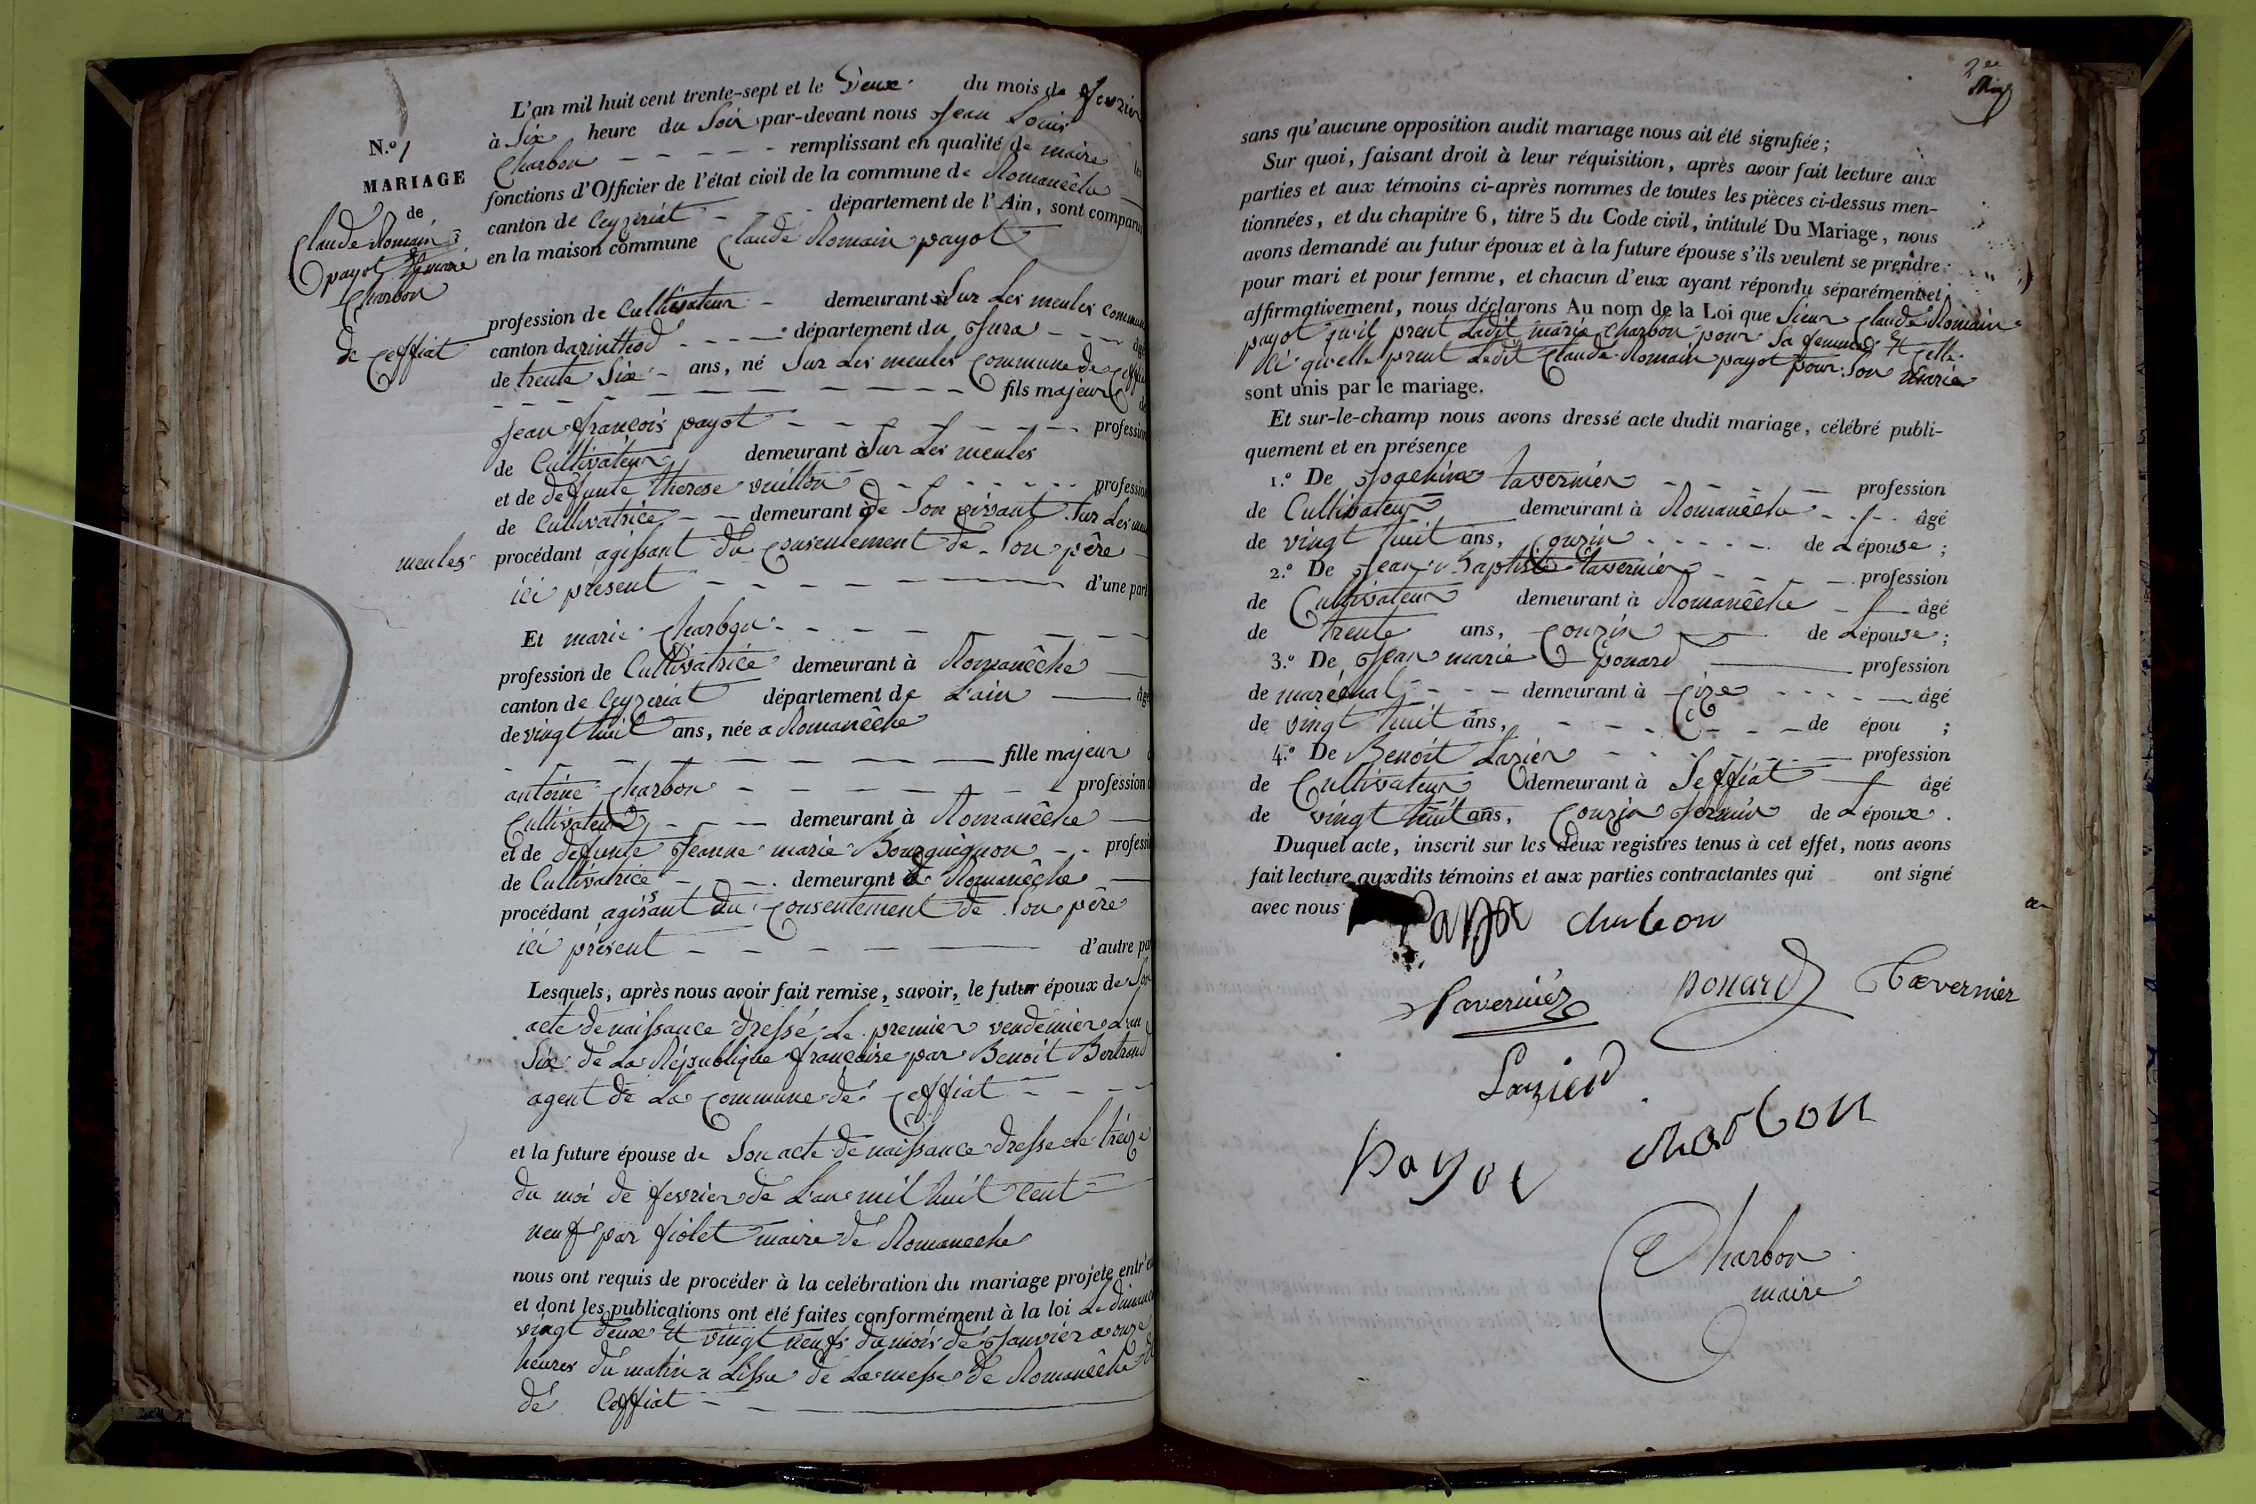 N.° 1
MARIAGE
de
Claude Romain
payot & marie
Charbon
de Ceffiat
L'an mil huit cent trente-sept et le Deux du mois de fevrier
à Six heure du Soir par-devant nous Jean Louis
Charbon remplissant en qualité de maire les
fonctions d'Officier de l'état civil de la commune de Romanêche
canton de Ceyzeriat département de l'Ain, sont comparu
en la maison commune Claude Romain payot
profession de Cultivateur demeurant à Sur Les meules commune
canton darinthod département du Jura âgé
de trente Six ans, né Sur Les meules Commune de Ceffia
fils majeur de
Jean françois payot profession
de Cultivateur demeurant à Sur Les meules
et de defunte therese vuillon profession
de Cultivatrice demeurant de Son vivant Sur Les
meules procédant agissant du Consentement de Son père
ici présent d'une part
Et marie Charbon
profession de Cultivatrice demeurant à Romanêche
canton de Ceyzeriat département de L'ain âgé
de vingt huit ans, née a Romanêche
fille majeur
antoine Charbon profession
Cultivateur demeurant à Romanêche
et de defunte Jeanne marie Bourguignon profession
de Cultivatrice demeurant à Romanêche
procédant agisant du Consentement de Son père
ici présent d'autre part
Lesquels, après nous avoir fait remise, savoir, le futur époux de Son
acte de naissance dressé Le premier vendémier L'an
Six de La République françaire par Benoit Bertrand
agent de La Commune de Ceffiat
et la future épouse de Son acte de naissance dresse Le treize
du moi de fevrier de L'an mil huit Cent
neuf par fiolet maire de Romaneche
nous ont requis de procéder à la celébration du mariage projete entr'eux
et dont les publications ont été faites conformément à la loi Le dimanche
vingt deux Et vingt neufs du mois de Janvier a onze
heures du matin a Lissu de La messe de Romanêche
de Ceffiat
2ee
sans qu'aucune opposition audit mariage nous ait été signifiée;
Sur quoi, faisant droit à leur réquisition, après avoir fait lecture aux
parties et aux témoins ci-après nommes de toutes les pièces ci-dessus men-
tionnées, et du chapitre 6, titre 5 du Code civil, intitulé Du Mariage, nous
avons demandé au futur époux et à la future épouse s'ils veulent se prendre
pour mari et pour femme, et chacun d'eux ayant répondu séparément et
affirmativement, nous déclarons Au nom de la Loi que Sieur Claude Romain
payot qu'il prent Ladit marie Charbon pour Sa femme Et Celle
ici qu'elle prent Ledit Claude Romain payot pour Son marie
sont unis par le mariage.
Et sur-le-champ nous avons dressé acte dudit mariage, célébré publi-
quement et en présence
1.° De Josephine tavernier profession
de Cultivateur demeurant à Romanêche âgé
de vingt huit ans, Couzin de Lépouse;
2.° De Jean Baptiste tavernier profession
de Cultivateur demeurant à Romanêche âgé
de trente ans, Couzin de Lépouse;
3.° De Jean marie ponard profession
de maréchal demeurant à Cize âgé
de vingt huit ans, de épou ;
4.° De Benoit Lazier profession
de Cultivateur demeurant à Seffiat âgé
de vingt huit ans, Couzin Jermin de Lépoux.
Duquel acte, inscrit sur les deux registres tenus à cet effet, nous avons
fait lecture auxdits témoins et aux parties contractantes qui ont signé
avec nous
Payot charbon
Tavernier ponard Tavernier
Lazier
payot charbon
Charbon
maire